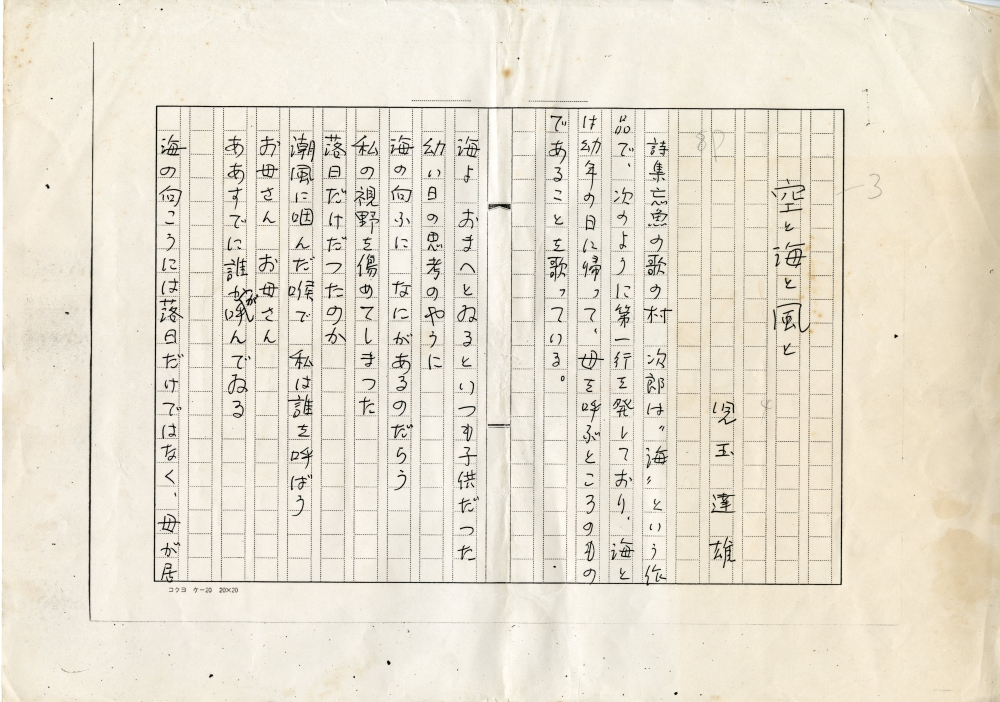 空と海と風と
3
児玉達雄
詩集忘魚の歌の村 次郎は〝海〟という作
品で、次のように第一行を発しており、海と
は幼年の日に帰って、母を呼ぶところのもの
であることを歌っている。
海よ おまへとゐるといつも子供だつた
幼い日の思考のやうに
海の向ふに なにがあるのだらう
私の視野を傷めてしまつた
落日だけだつたのか
潮風に咽んだ喉で 私は誰を呼ばう
お母さん お母さん
ああすでに誰かが呼んでゐる
海の向こうには落日だけではなく、母が居
コクヨ ケー20 20×20